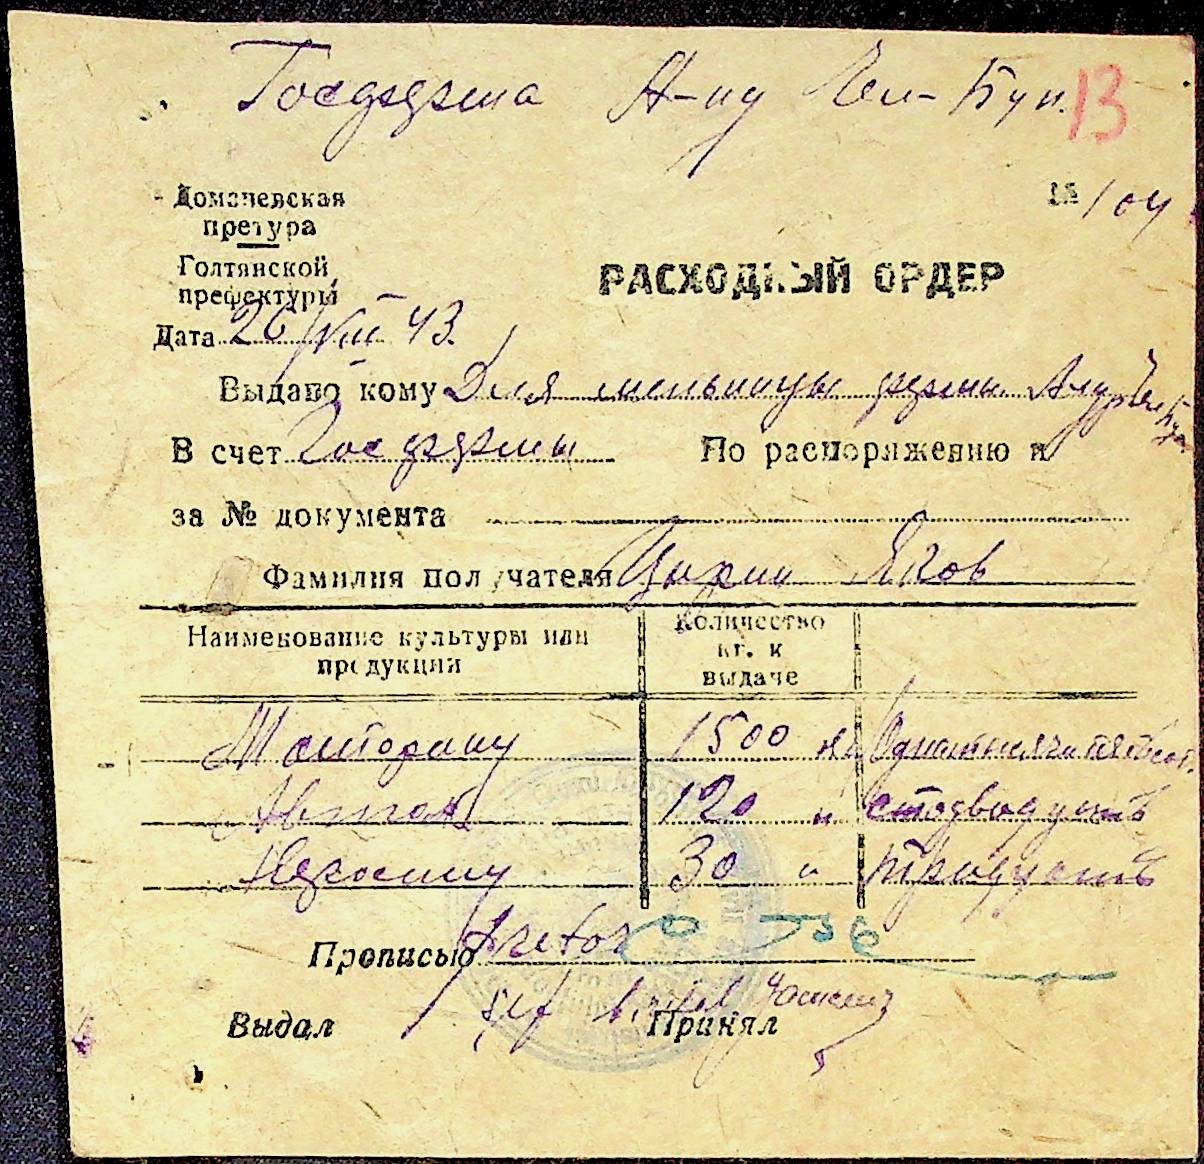 Госферма А-ну Чел-Бун. 13
Доманевская
претура
№ 104
Голтянской
префектуры
РАСХОДНЫЙ ОРДЕР
Дата 26/VIII 43.
Выдано кому Для мельницы ферм.
В счет Госфермы По распоряжению и
за № документа
Фамилия получателя Цурин Яков
Наименование культуры или
продукции
Количество
кг. к
выдаче
1500 кг Однатысячапятьсот
Автол 120 " стодвадцать
Керосину 30 " тридцать
Прописью Pretor
Выдал Şef Принял